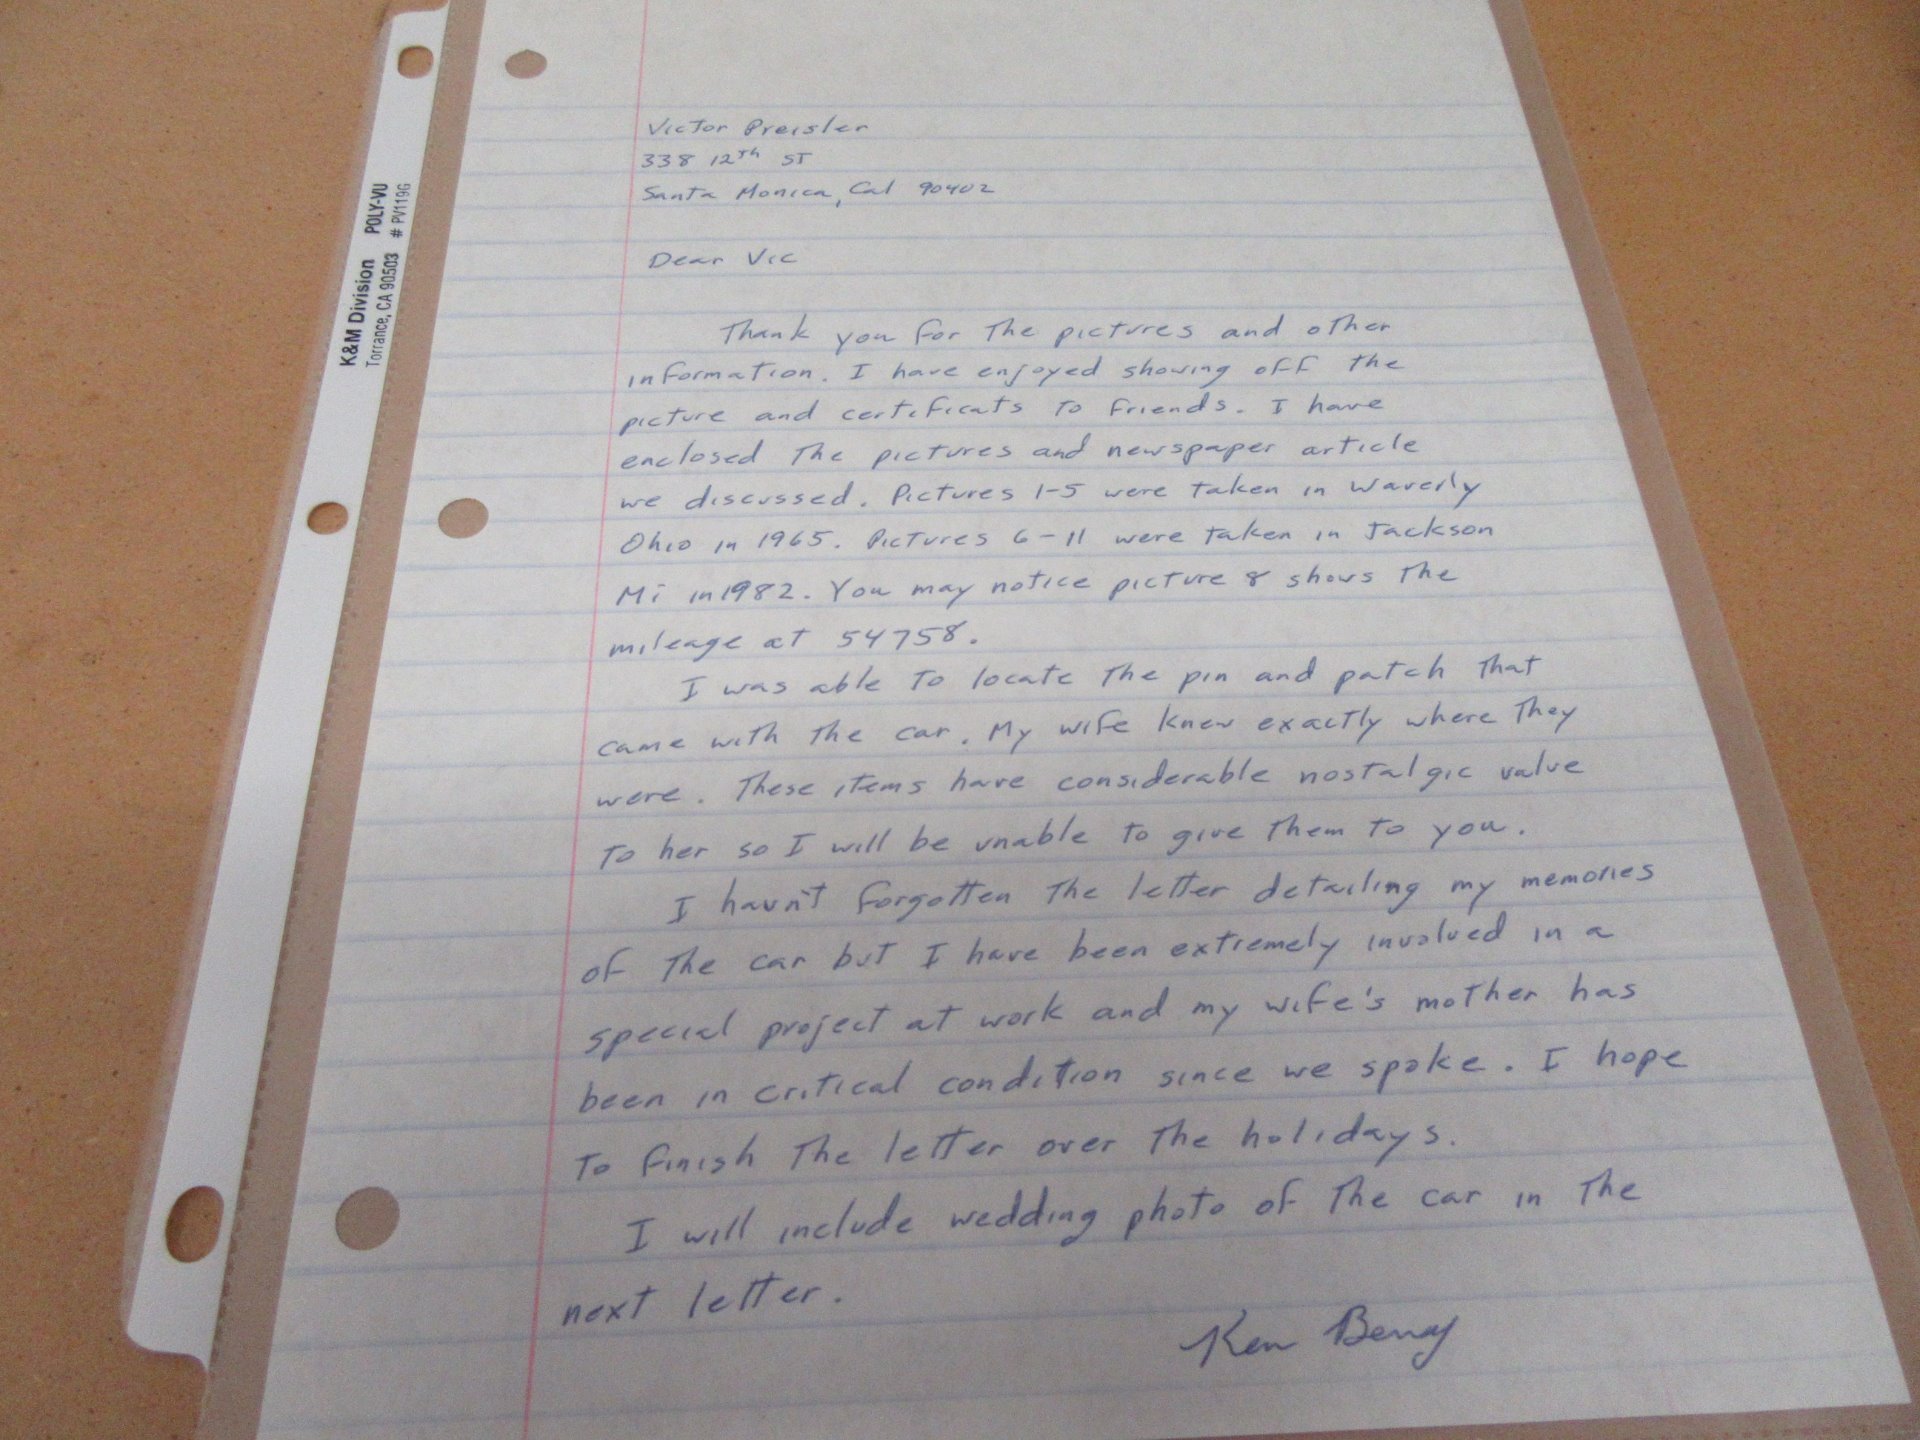 K&M Division POLY-VU
Torrance, CA 90503 # PV119G
Victor Preisler
338 12Th ST
Santa Monica, Cal 90402
Dear Vic
Thank you for The pictures and other
information. I have enjoyed showing off the
picture and certificats to friends. I have
enclosed The pictures and newspaper article
we discussed. Pictures 1-5 were taken in Waverly
Ohio in 1965. Pictures 6-11 were taken in Jackson
Mi in 1982. You may notice picture 8 shows The
mileage at 54758.
I was able To locate The pin and patch that
came with the car. My wife knew exactly where They
were. These items have considerable nostalgic value
To her so I will be unable to give them to you.
I havn't forgotten The letter detailing my memories
of The car but I have been extremely involved in a
special project at work and my wife's mother has
been in critical condition since we spoke. I hope
To finish The letter over The holidays.
I will include wedding photo of The car in The
next letter.
Ken